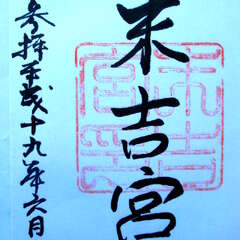 末吉宮
参拝平成十九年六月